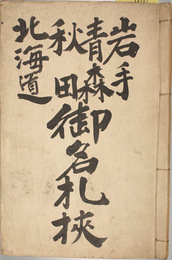 岩手
青森
秋田
北海道
御名札挾